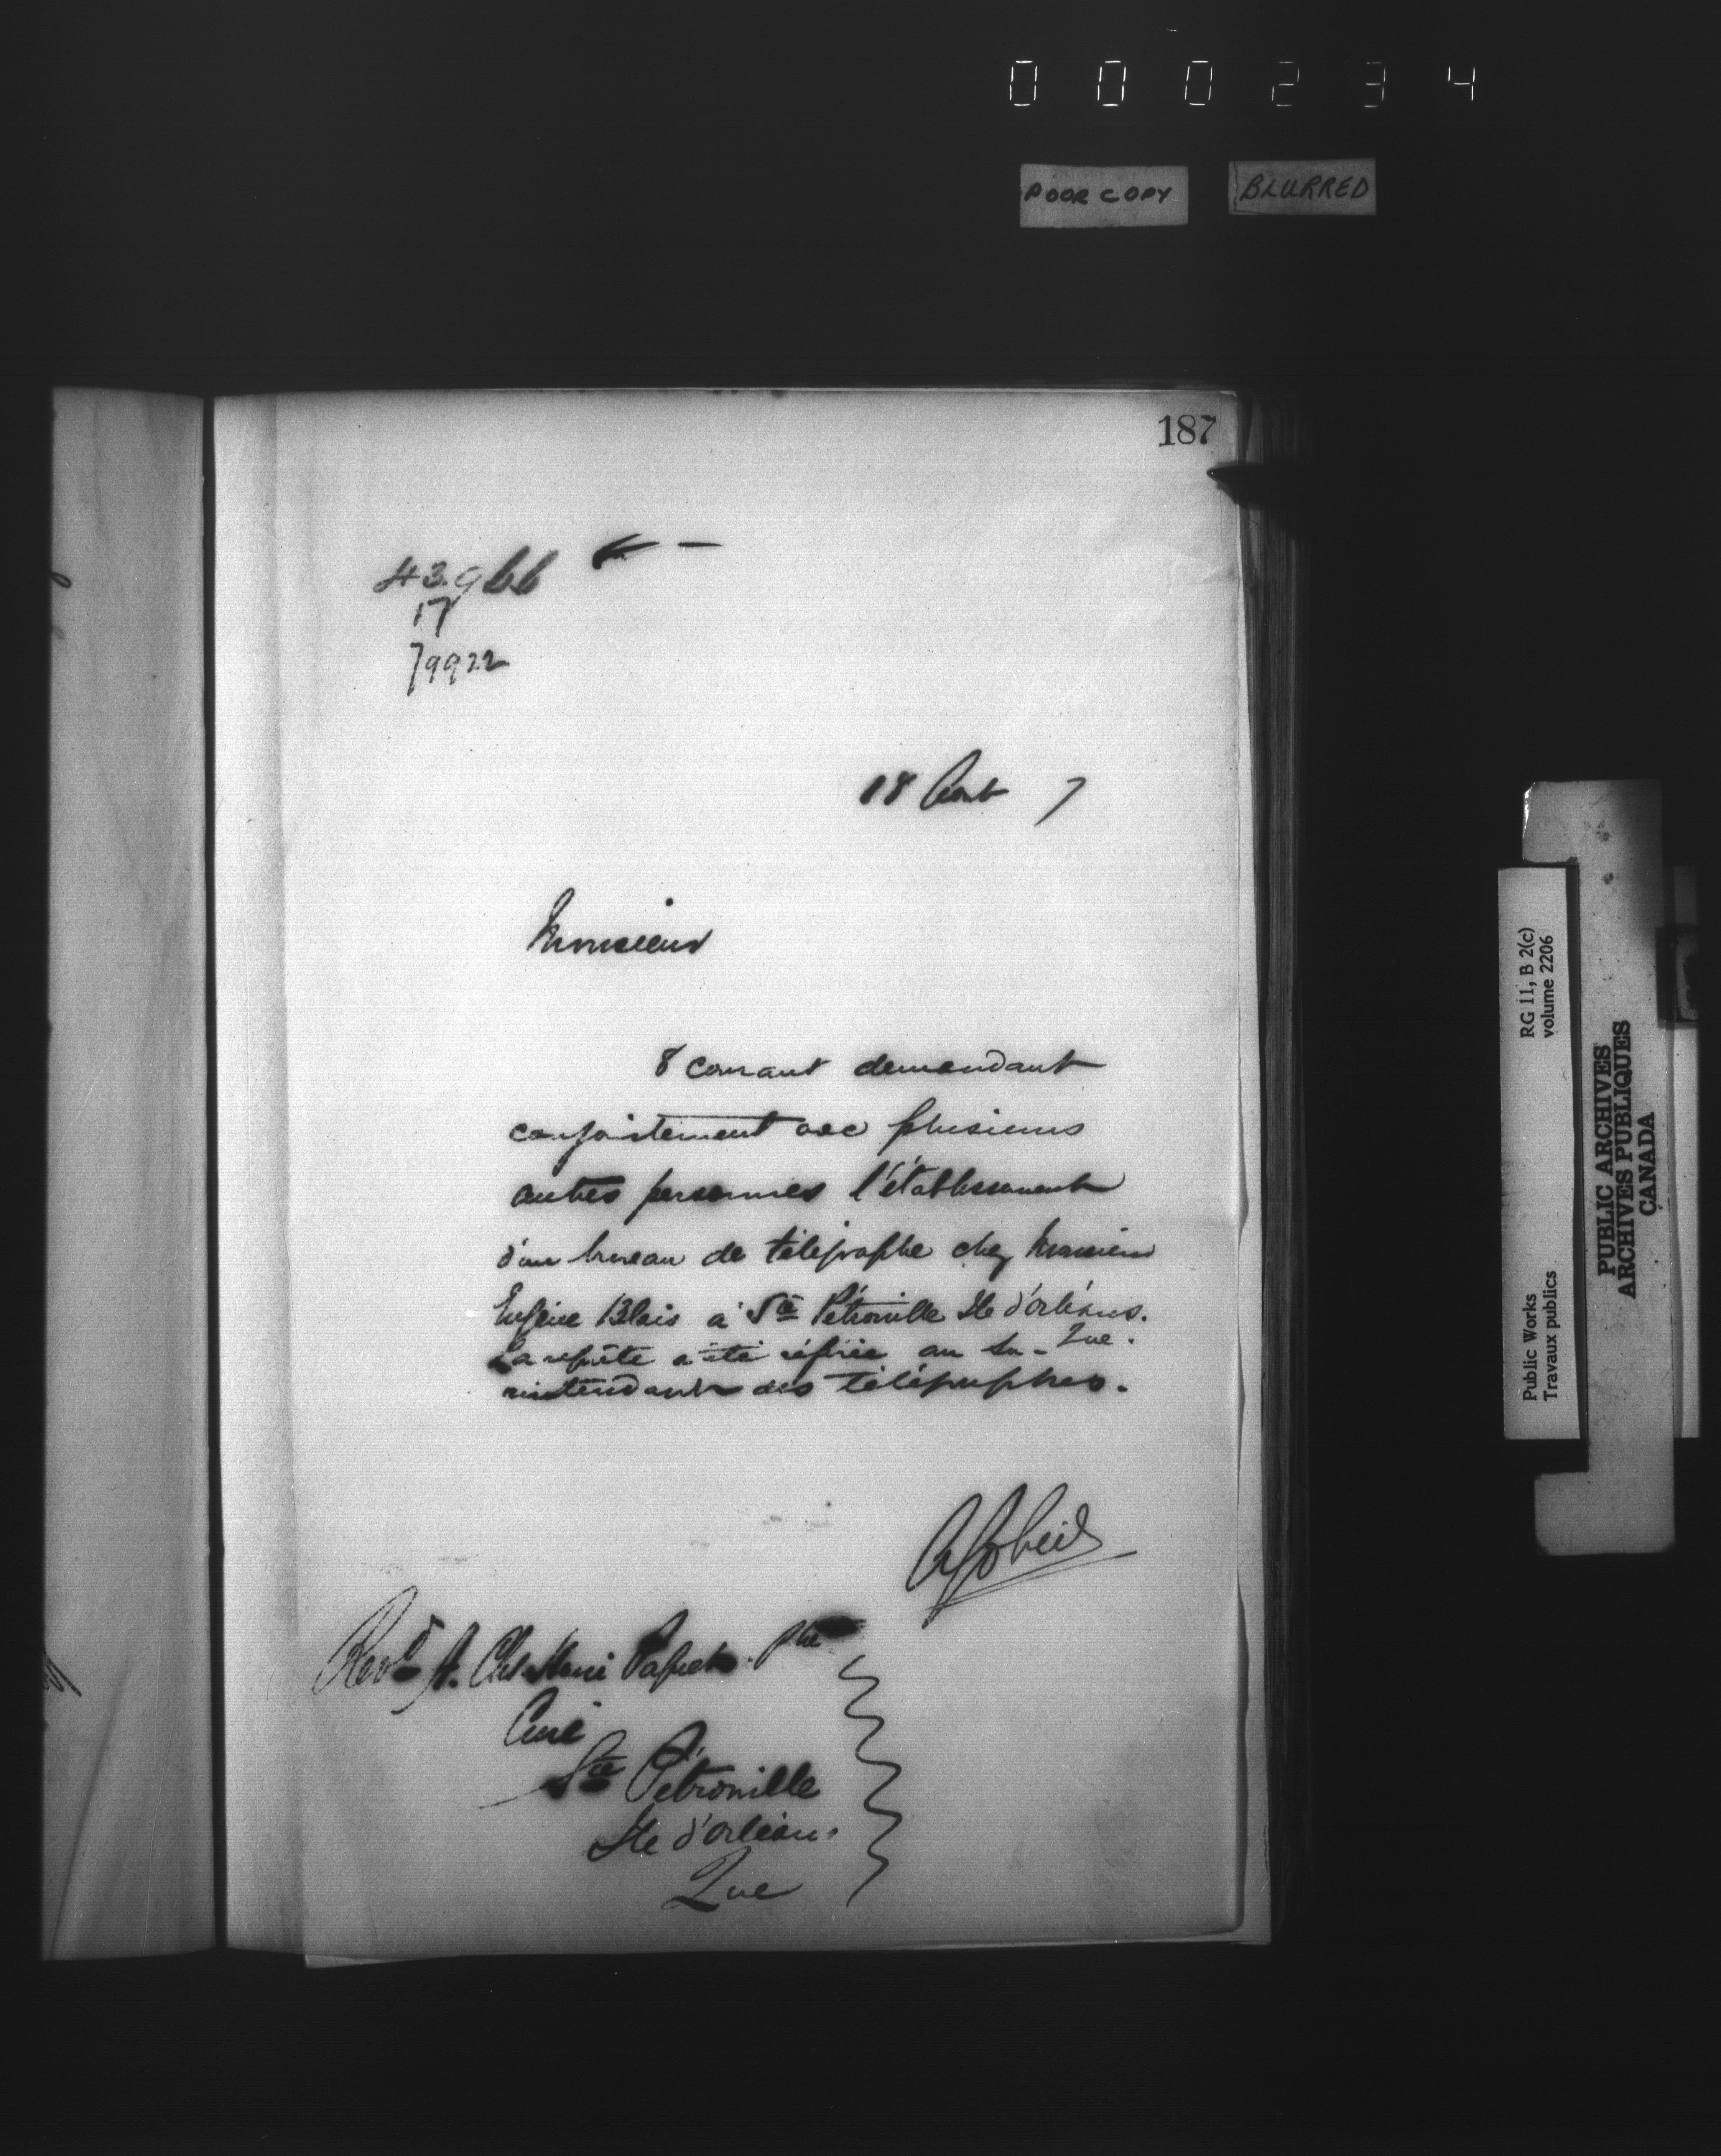 000234
POOR COPY BLURRED
187
43966
17
79922
18 Août 7
Monsieur
8 courant demandant
conjointement avec plusieurs
autres personnes l'établissement
d'un bureau de télégraphe chez Monsieur
Eugène Blais à Ste Pétronille Ile d'Orléans.
Que.
La requête a été référée au Su-
rintendant des télégraphes.
Revd A. Chs. Henri Paquet Ptre
Curé
Ste Pétronille
Ile d'Orléans.
Que
RG 11, B 2(c)
volume 2206
Public Works
Travaux publics
PUBLIC ARCHIVES
ARCHIVES PUBLIQUES
CANADA